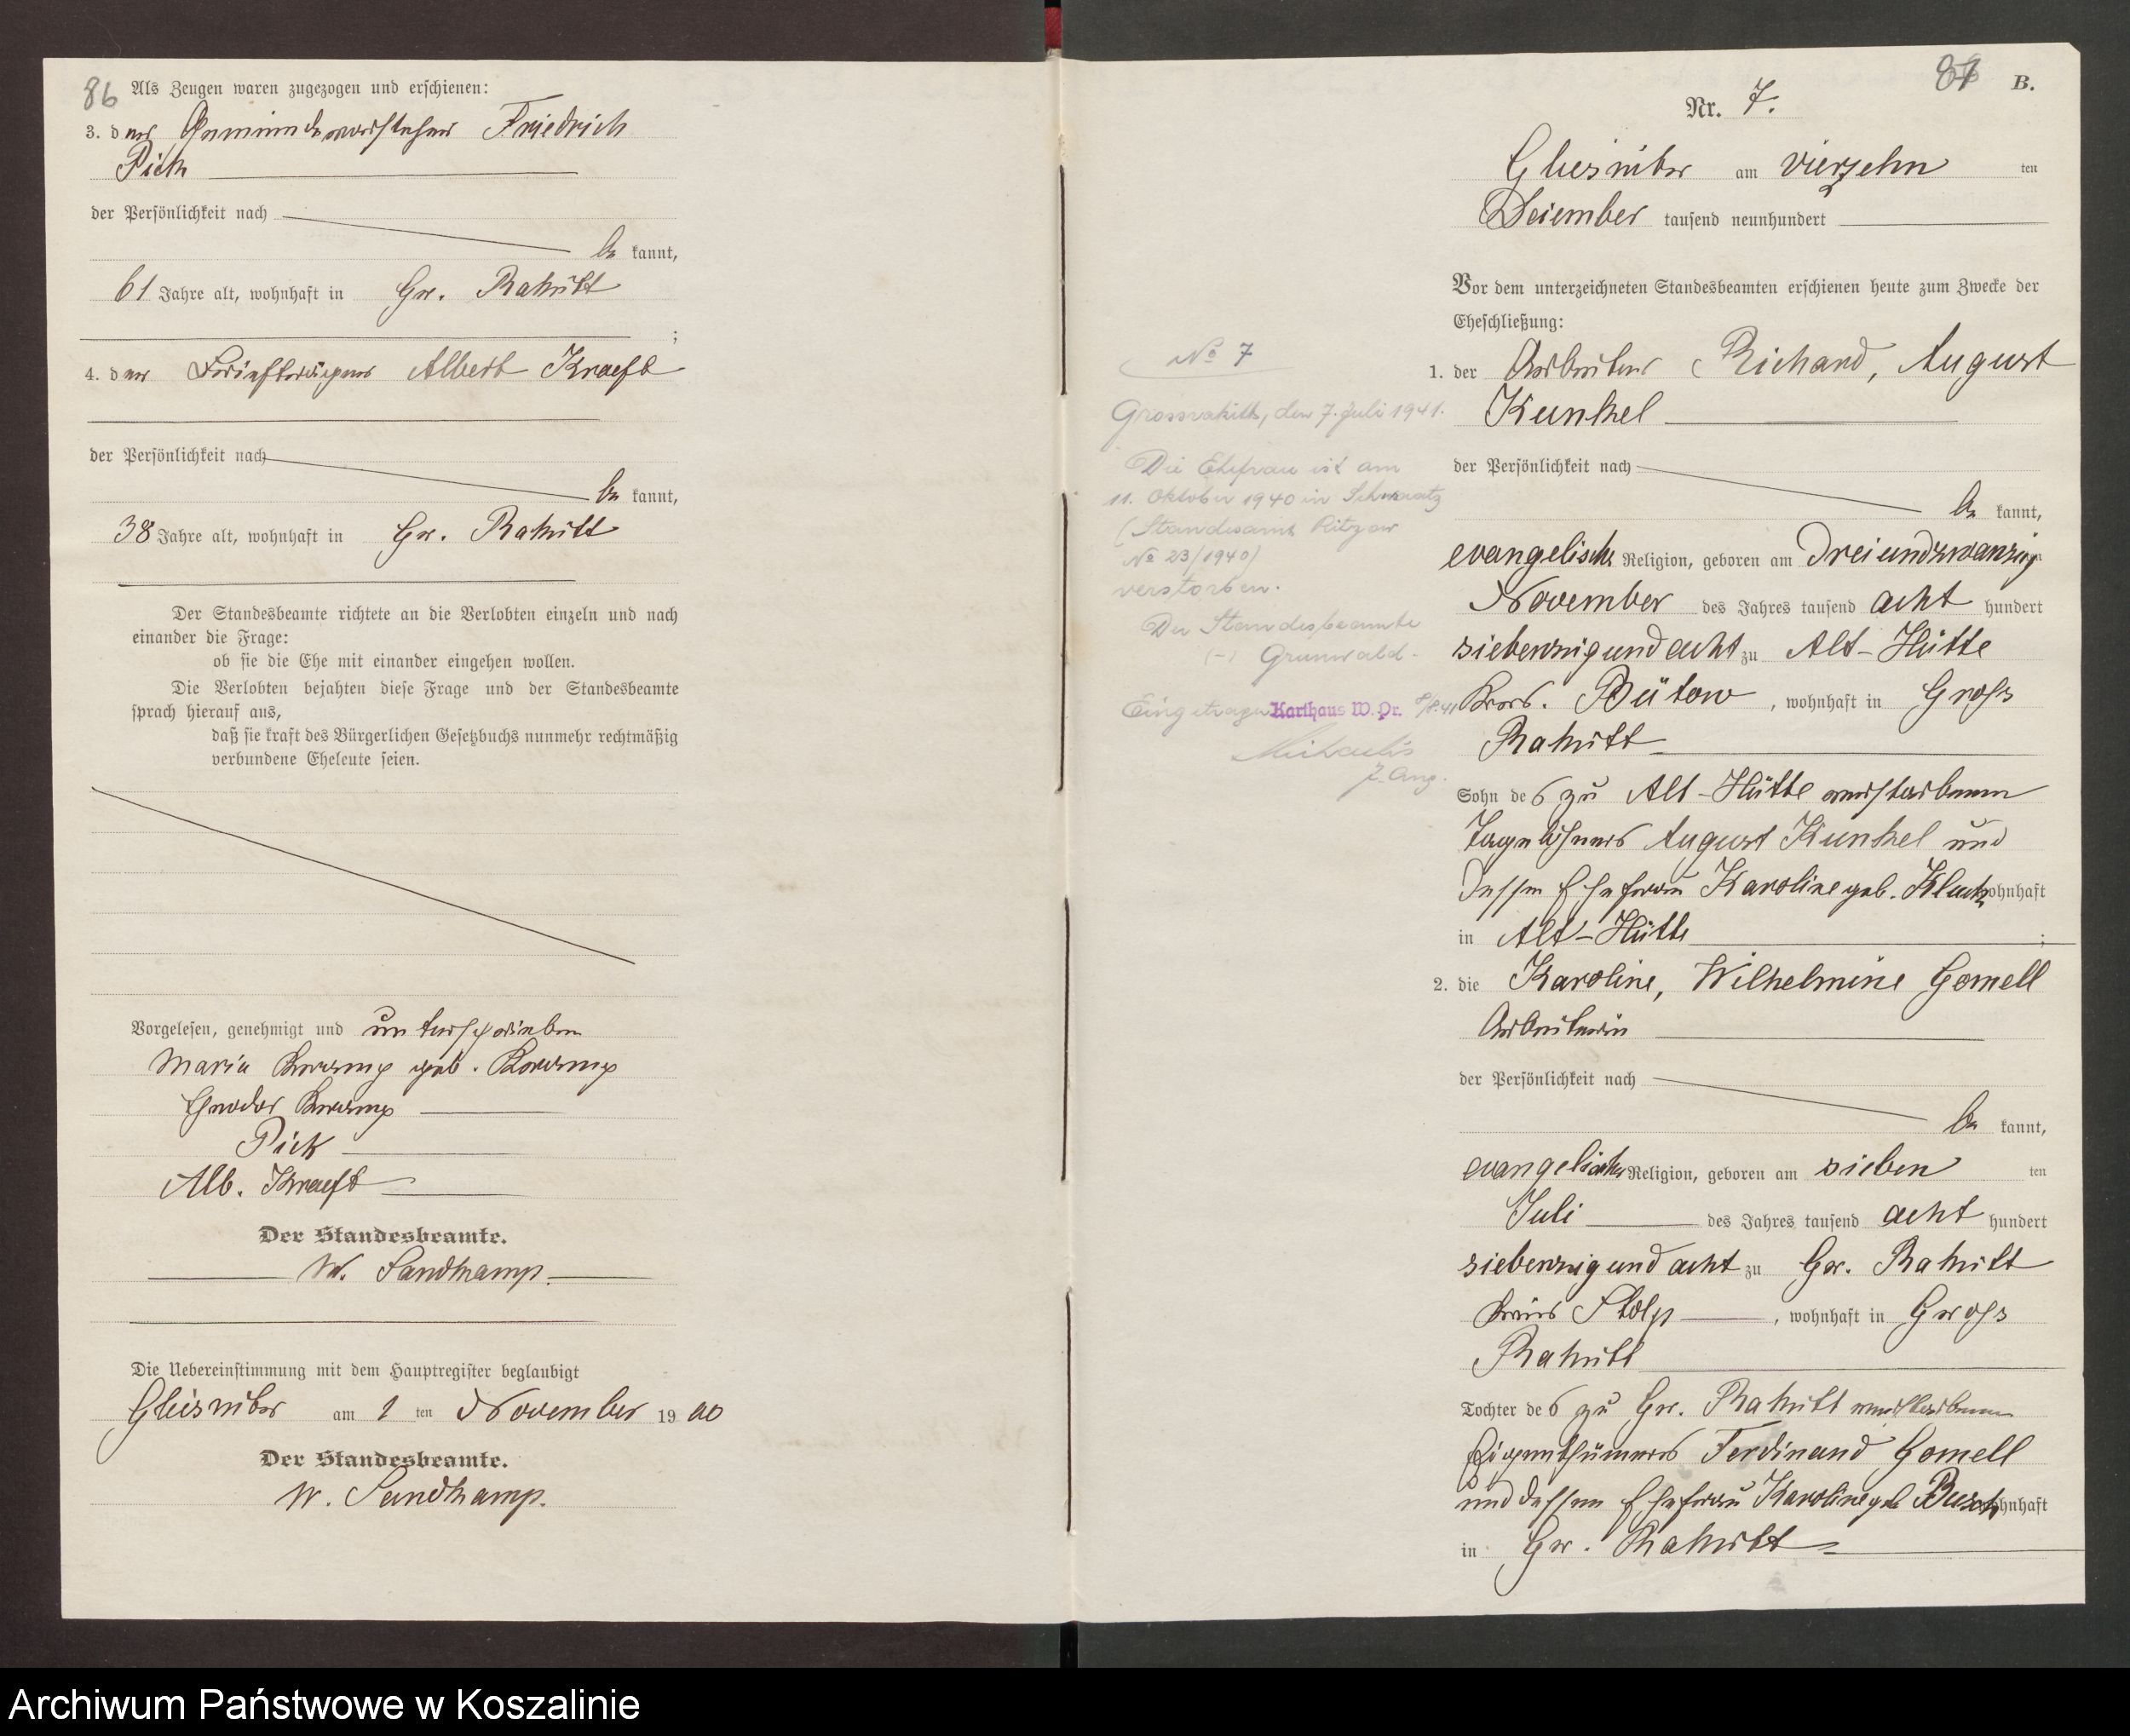 86
Als Zeugen waren zugezogen und erschienen:
3. der Gemeindevorsteher Friedrich
Pick
der Persönlichkeit nach
be kannt,
61 Jahre alt, wohnhaft in Gr. Rakitt
;
4. der Briefträger Albert Kraeft
der Persönlichkeit nach
be kannt,
38 Jahre alt, wohnhaft in Gr. Rakitt
Der Standesbeamte richtete an die Verlobten einzeln und nach
einander die Frage:
ob sie die Ehe mit einander eingehen wollen.
Die Verlobten bejahten diese Frage und der Standesbeamte
sprach hierauf aus,
daß sie kraft des Bürgerlichen Gesetzbuchs nunmehr rechtmäßig
verbundene Eheleute seien.
Vorgelesen, genehmigt und unterschrieben
Maria geb.
Pick
Alb. Kraeft
Der Standesbeamte.
W. Sandkamp.
Die Uebereinstimmung mit dem Hauptregister beglaubigt
Gliesnitz am 1 ten November 19 00
Der Standesbeamte.
W. Sandkamp.
87 B.
Nr. 7.
Gliesnitz am vierzehn ten
Dezember tausend neunhundert
Vor dem unterzeichneten Standesbeamten erschienen heute zum Zwecke der
Eheschließung:
1. der Arbeiter Richard, August
Kunkel
der Persönlichkeit nach
be kannt,
evangelischer Religion, geboren am dreiundzwanzig
November des Jahres tausend acht hundert
siebenzig und acht zu Alt-Hütte
Kreis Bütow, wohnhaft in Gross
Rakitt
Sohn des zu Alt-Hütte verstorbenen
Tagelöhners August Kunkel und
dessen Ehefrau Karoline geb. wohnhaft
in Alt-Hütte ;
2. die Karoline, Wilhelmine Gomell
Arbeiterin
der Persönlichkeit nach
be kannt,
evangelischer Religion, geboren am sieben ten
Juli des Jahres tausend acht hundert
siebenzig und acht zu Gr. Rakitt
Kreis Stolp, wohnhaft in Gross
Rakitt
Tochter des zu Gr. Rakitt verstorbenen
Eigenthümers Ferdinand Gomell
und dessen Ehefrau Karoline geb. Busch wohnhaft
in Gr. Rakitt
No 7
Grossrakitt, den 7. Juli 1941.
Die Ehefrau ist am
11. Oktober 1940 in
(Standesamt Ritzow
No 23/1940)
verstorben.
Der Standesbeamte
(-) Grunwald.
Eingetragen Karthaus W. Pr. 8/8.41
Archiwum Państwowe w Koszalinie